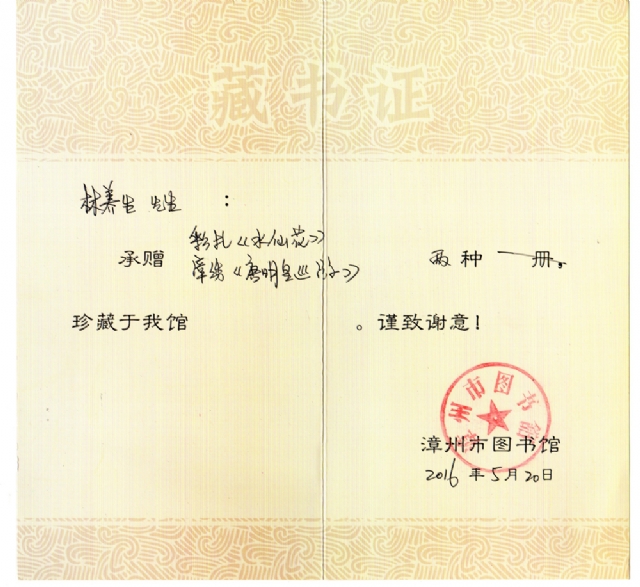 藏书证
林养生 先生 :
彩扎《水仙花》
承赠 两种 册。
《唐明皇巡游》
珍藏于我馆 。谨致谢意!
漳州市图书馆
漳州市图书馆
2016年5月20日